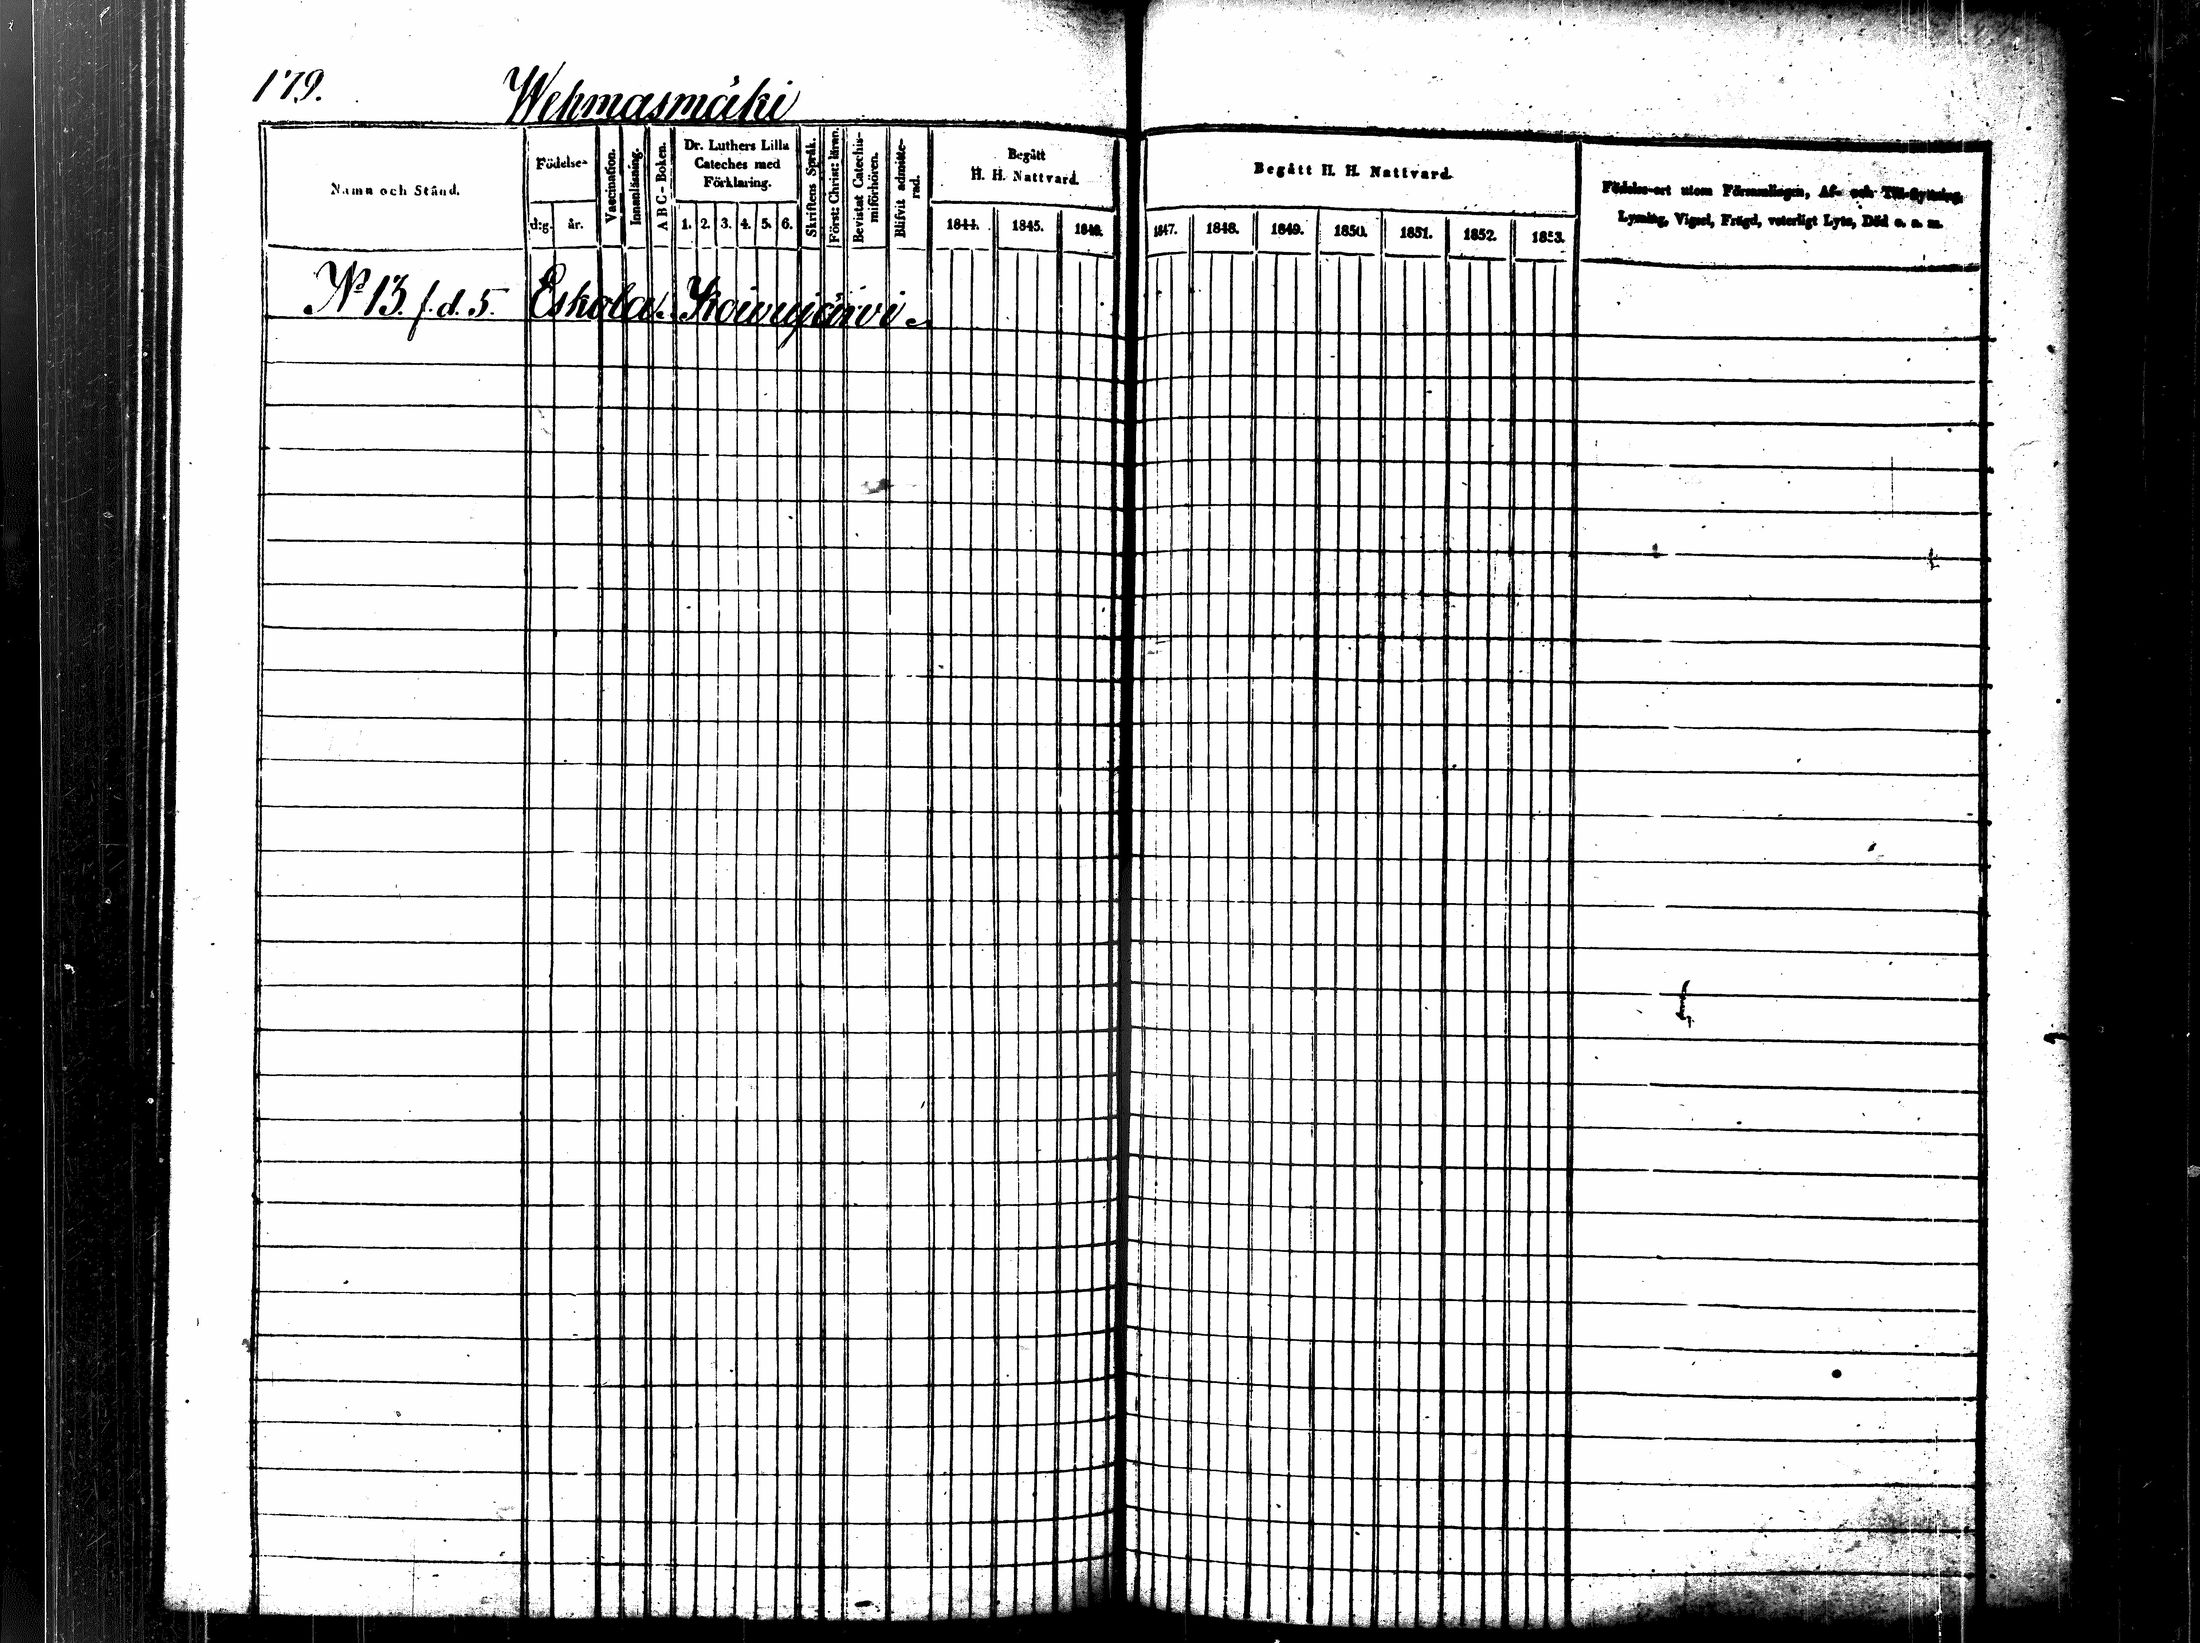 179. Wehmasmäki
Namn och Stånd.
Födelse-
d:g. år.
Vaccination.
Innanläsning.
A B C - Boken.
Dr. Luthers Lilla
Cateches med
Förklaring.
1. 2. 3. 4. 5. 6.
Skriftens Språk.
Först: Christ: läran.
Bevistat Catechis-
miförhören.
Blifvit admitte-
rad.
Begått
H. H. Nattvard.
1844. 1845. 1846.
Begått H. H. Nattvard.
1847. 1848. 1849. 1850. 1851. 1852. 1853.
Födelse-ort utom Församlingen, Af- och Till-flyttning,
Lysning, Vigsel, Frägd, veterligt Lyte, Död o. s. m.
No 13. f. d. 5. Eskola. Koivujärvi.